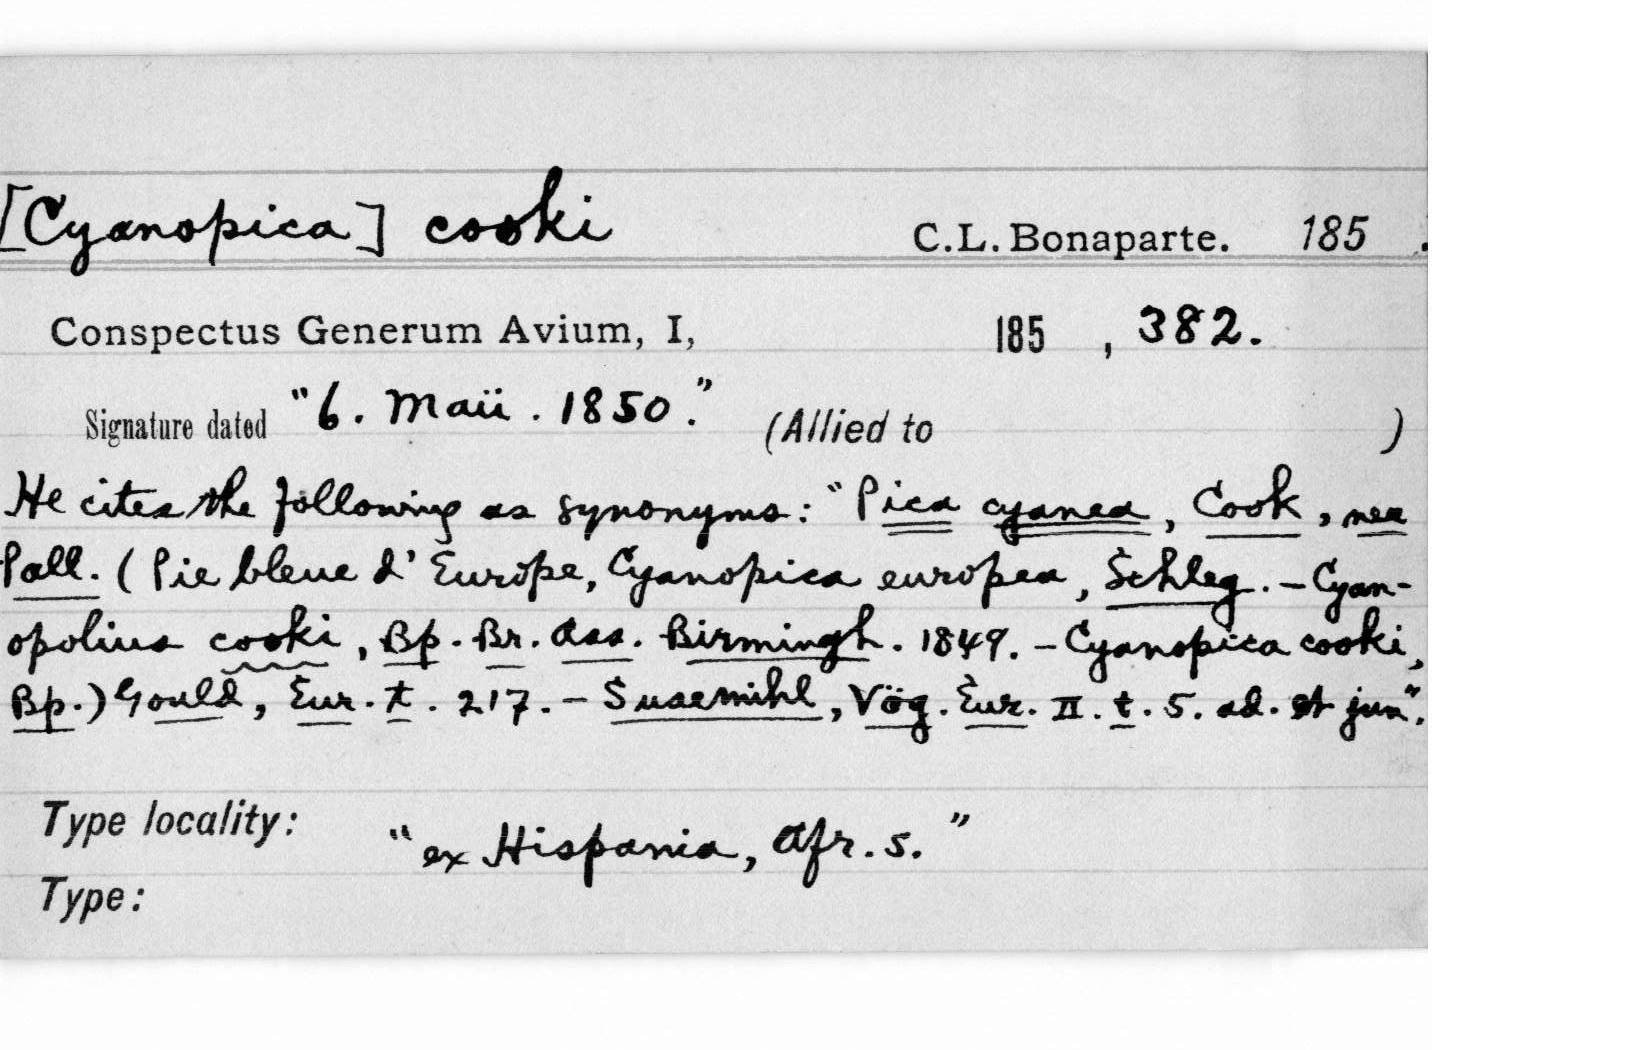 [Cyanopica] cooki C.L. Bonaparte. 185 .
Conspectus Generum Avium, I, 185 , 382.
Signature dated "6. Maii. 1850." (Allied to )
He cites the following as synonyms: "Pica cyanea, Cook, nec
Pall. (Pie bleue d'Europe, Cyanopica europea, Schleg. - Cyan-
opolius cooki, Bp. Br. Ass. Birmingh. 1849. - Cyanopica cooki,
Bp.) Gould, Eur. t. 217. - Susemihl, Vög. Eur. II. t. 5. ad. et jun".
Type locality: "ex Hispania, Afr. s."
Type: